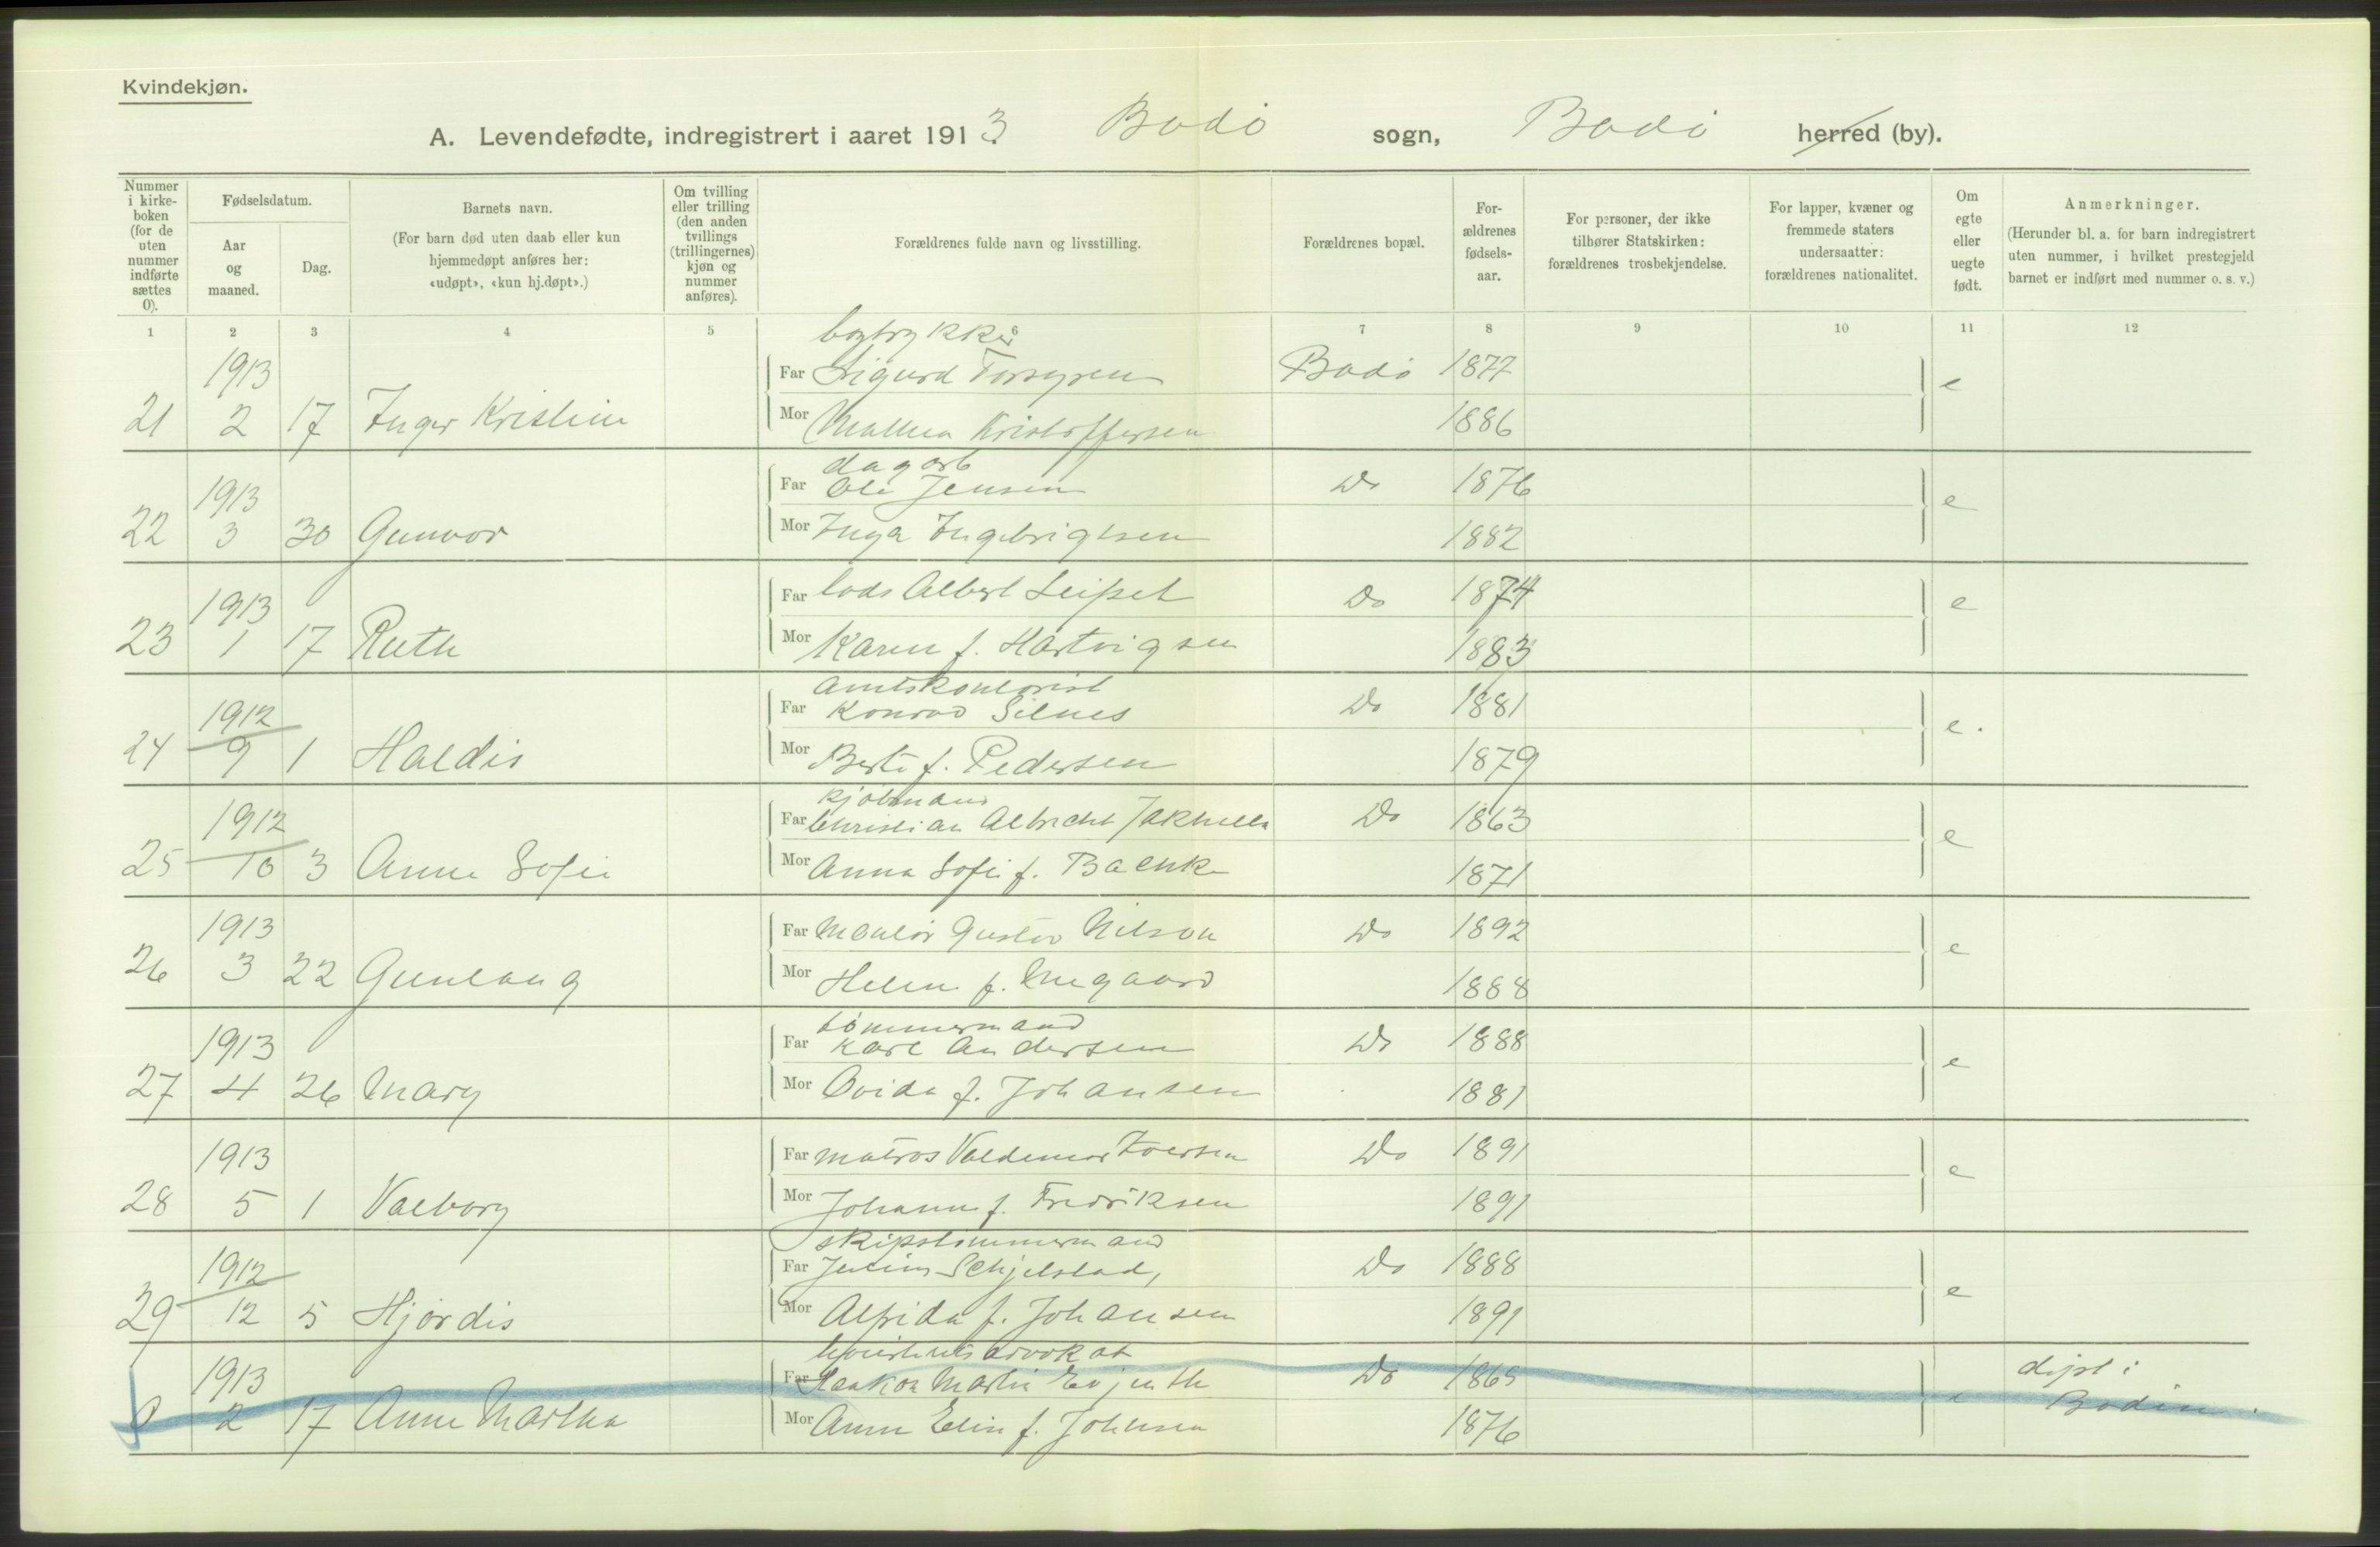 Kvindekjøn.
A. Levendefødte, indregistrert i aaret 1913. Bodø sogn, Bodø herred (by).
Nummer i kirke-boken (for de uten nummer indførte sættes 0).
Fødselsdatum.
Aar og maaned.
Dag.
Barnets navn.
(For barn død uten daab eller kun hjemmedøpt anføres her: «udøpt», «kun hj.døpt».)
Om tvilling eller trilling (den anden tvillings (trillingernes) kjøn og nummer anføres).
Forældrenes fulde navn og livsstilling.
Forældrenes bopæl.
For-ældrenes fødsels-aar.
For personer, der ikke tilhører Statskirken: forældrenes trosbekjendelse.
For lapper, kvæner og fremmede staters undersaatter: forældrenes nationalitet.
Om egte eller uegte født.
Anmerkninger.
(Herunder bl. a. for barn indregistrert uten nummer, i hvilket prestegjeld barnet er indført med nummer o. s. v.)
1 2 3 4 5 6 7 8 9 10 11 12
bogtrykker
1913 Far Sigurd Bodø 1877 e
21 2 17 Inger Kristine Mor Kristoffersen 1886
dagarb
1913 Far Ole Jensen Do 1876 e
22 3 30 Gunvor Mor Inga Ingebrigtsen 1882
1913 Far lods Albert Seipel Do 1874 e
23 1 17 Ruth Mor Karen f. Hartvigsen 1883
amtskontorist
1912 Far Konrad Silnes Do 1881 e.
24 9 1 Haldis Mor Berte f. Pedersen 1879
kjøbmand
1912 Far Christian Albrecht Jakhelln Do 1863 e
25 10 3 Anne Sofie Mor Anna Sofie f. 1871
1913 Far Montør Gustav Nilson Do 1892 e
26 3 22 Gunlaug Mor Helene f. 1888
tømmermand
1913 Far Karl Andersen Do 1888 e
27 4 26 Mary Mor Ovida f. Johansen 1881
1913 Far matros Valdemar Iversen Do 1891 e
28 5 1 Valborg Mor Johanne f. Fredriksen 1891
skipstømmermand
1912 Far Schjelstad, Do 1888 e
29 12 5 Hjørdis Mor Alfrida f. Johansen 1891
høiesteretsadvokat
1913 Far Haakon Martin Evjenth Do 1865 e døpt i
0 2 17 Anne Martha Mor Anna Elin f. Johnsen 1876 Bodin.